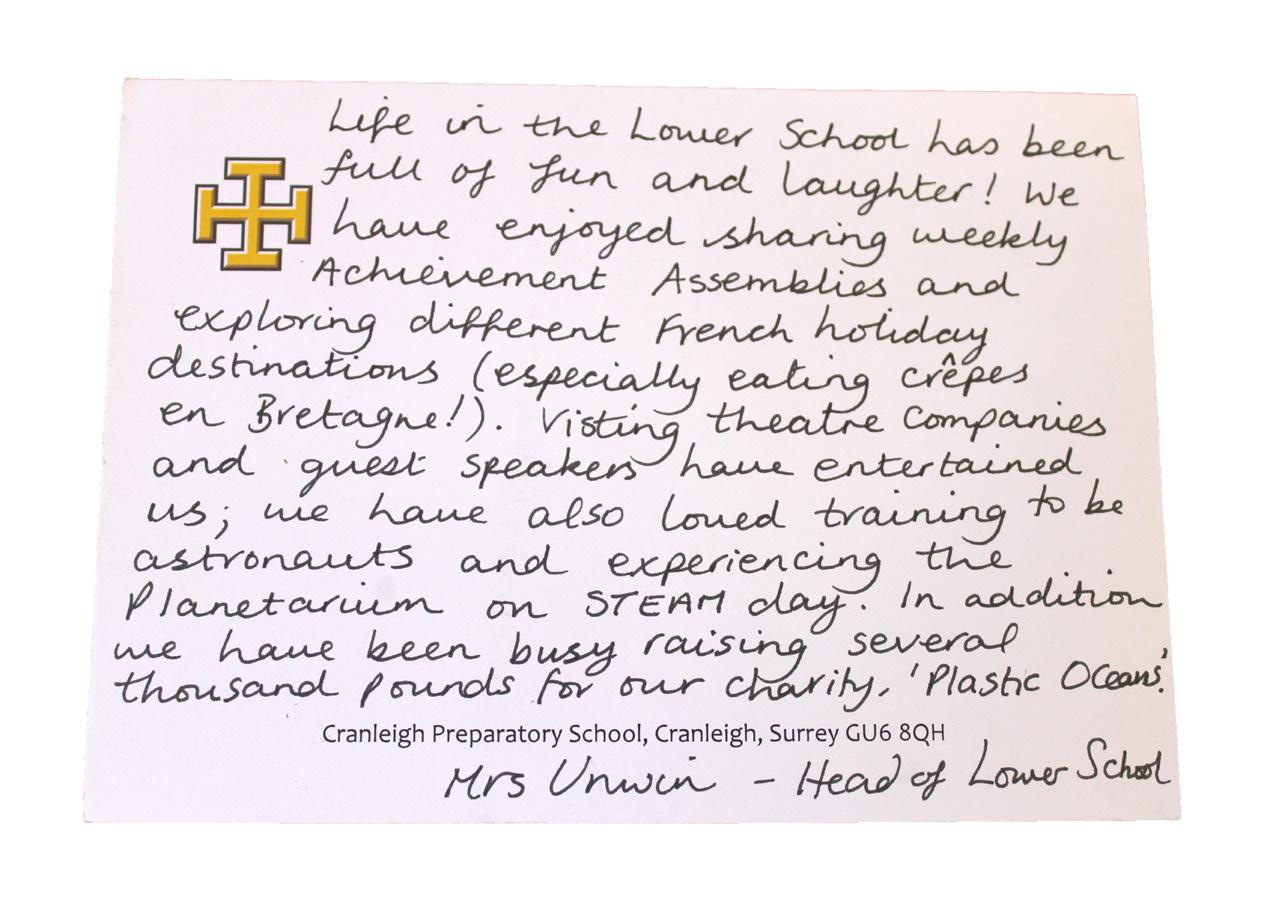 Life in the Lower School has been
full of fun and laughter! We
have enjoyed sharing weekly
Achievement Assemblies and
exploring different French holiday
destinations (especially eating crêpes
en Bretagne!). Visting theatre companies
and guest speakers have entertained
us; we have also loved training to be
astronauts and experiencing the
Planetarium on STEAM day. In addition
we have been busy raising several
thousand pounds for our charity, 'Plastic Oceans'.
Cranleigh Preparatory School, Cranleigh, Surrey GU6 8QH
Mrs Unwin - Head of Lower School